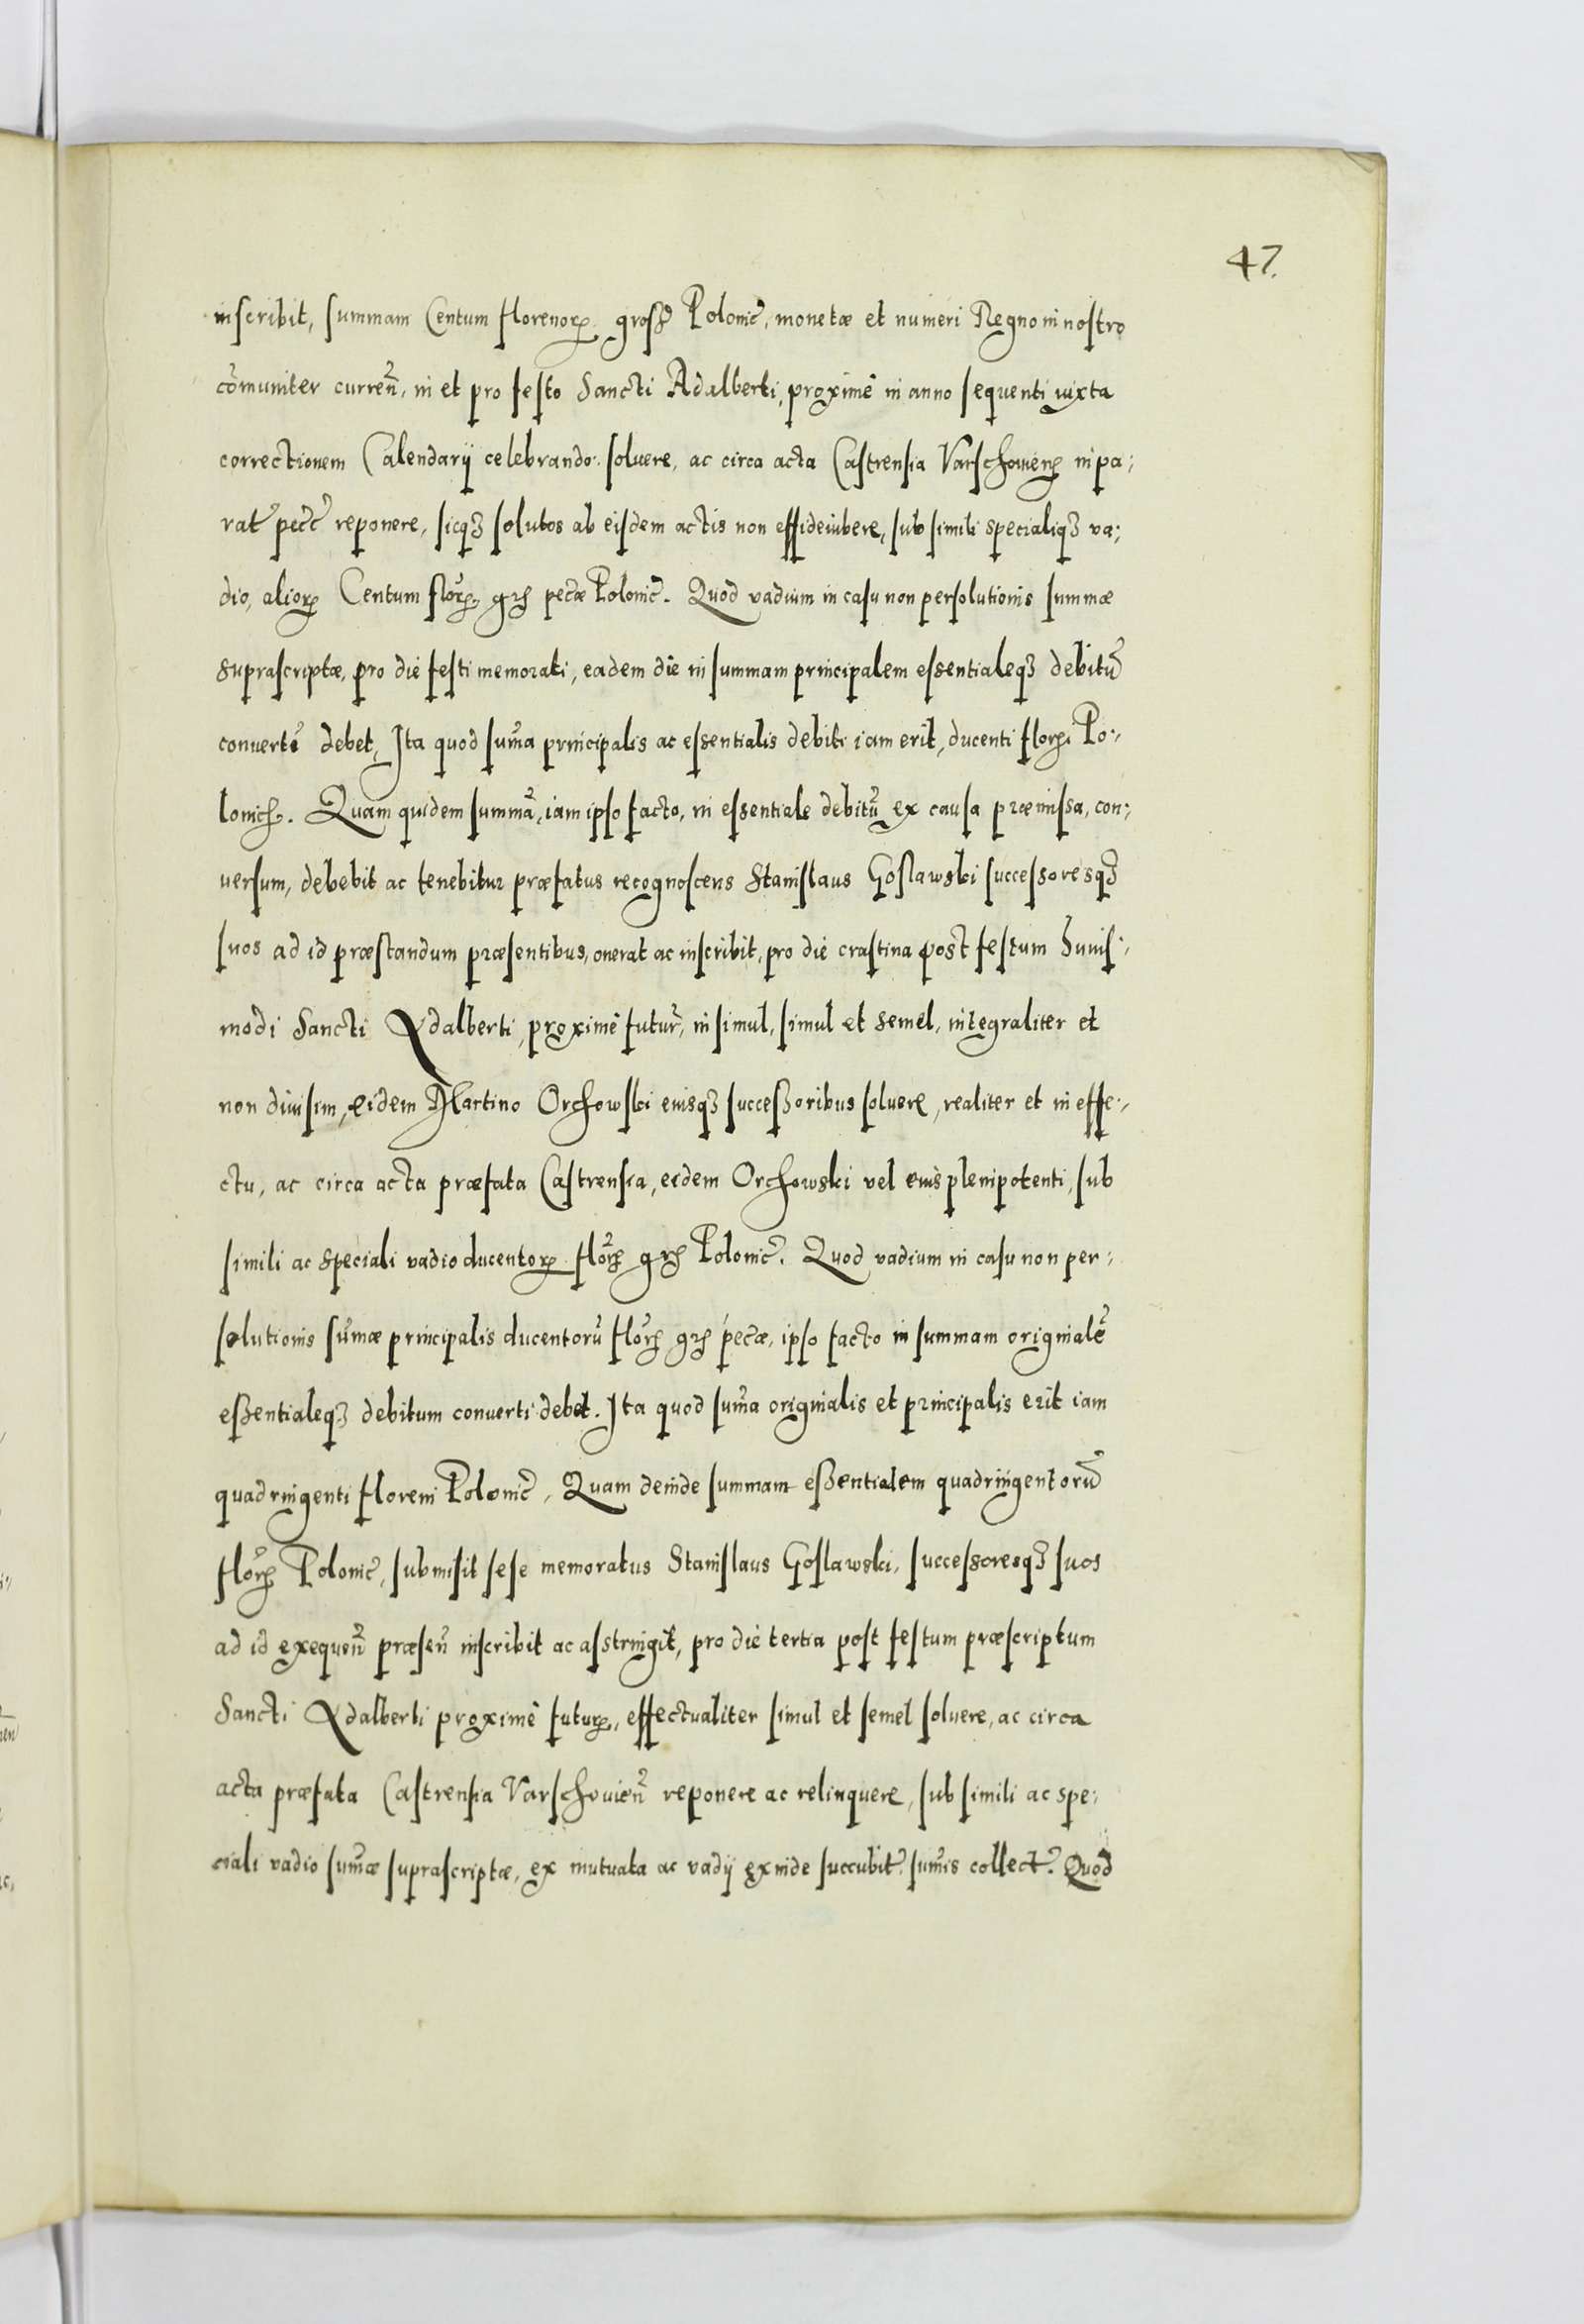 47.
inscribit, summam Centum florenorꝝ grosſ Polonic̃, monetæ et numeri Regno in nostro
cõmuniter curren̄, in et pro festo Sancti Adalberti, proximè in anno sequenti iuxta
correctionem Calendarij celebrando: soluere, ac circa acta Castrensia Varschouien̄ in pa:
rat̃ pec̃ reponere, sicqꝫ solutos ab eisdem actis non effideiubere, sub simili specialiqꝫ va:
dio, aliorꝝ Centum flor̃ꝝ grꝭ pec̃æ Polonic̃. Quod vadium in casu non persolutionis summæ
suprascriptæ, pro die festi memorati, eadem die in summam principalem essentialeqꝫ debitũ
conuertĩ debet, Ita quod sum̃a principalis ac essentialis debiti iam erit, ducenti florꝭ Po:
lonicꝭ. Quam quidem summã, iam ipso facto, in essentiale debitũ ex causa præmissa, con:
uersum, debebit ac tenebitur præfatus recognoscens Stanislaus Goslawski successoresqꝫ
suos ad id præstandum præsentibus, onerat ac inscribit, pro die crastina post festum huius:
modi Sancti Adalberti, proximè futur̃, insimul, simul et semel, integraliter et
non diuisim, eidem Martino Orchowski eiusqꝫ successoribus soluere, realiter et in effe:
ctu, ac circa acta præfata Castrensia, eidem Orchowski vel eius plenipotenti, sub
simili ac speciali vadio ducentorꝝ flor̃ꝭ grꝭ Polonic̃. Quod vadium in casu non per:
solutionis sum̃æ principalis ducentorũ flor̃ꝭ grꝭ pec̃æ, ipso facto in summam originalẽ
essentialeqꝫ debitum conuerti debet. Ita quod sum̃a originalis et principalis erit iam
quadringenti floreni Polonic̃, Quam deinde summam essentialem quadringentorũ
flor̃ꝭ Polonic̃, submisit sese memoratus Stanislaus Goslawski, successoresqꝫ suos
ad id exequen̄ præsen̄ inscribit ac astringit, pro die tertia post festum præscriptum
Sancti Adalberti proximè futurꝝ, effectualiter simul et semel soluere, ac circa
acta præfata Castrensia Varschouien̄ reponere ac relinquere, sub simili ac spe:
ciali vadio sum̃æ suprascriptæ, ex mutuata ac vadij exinde succubit̃ sum̃is collect̃. Quod